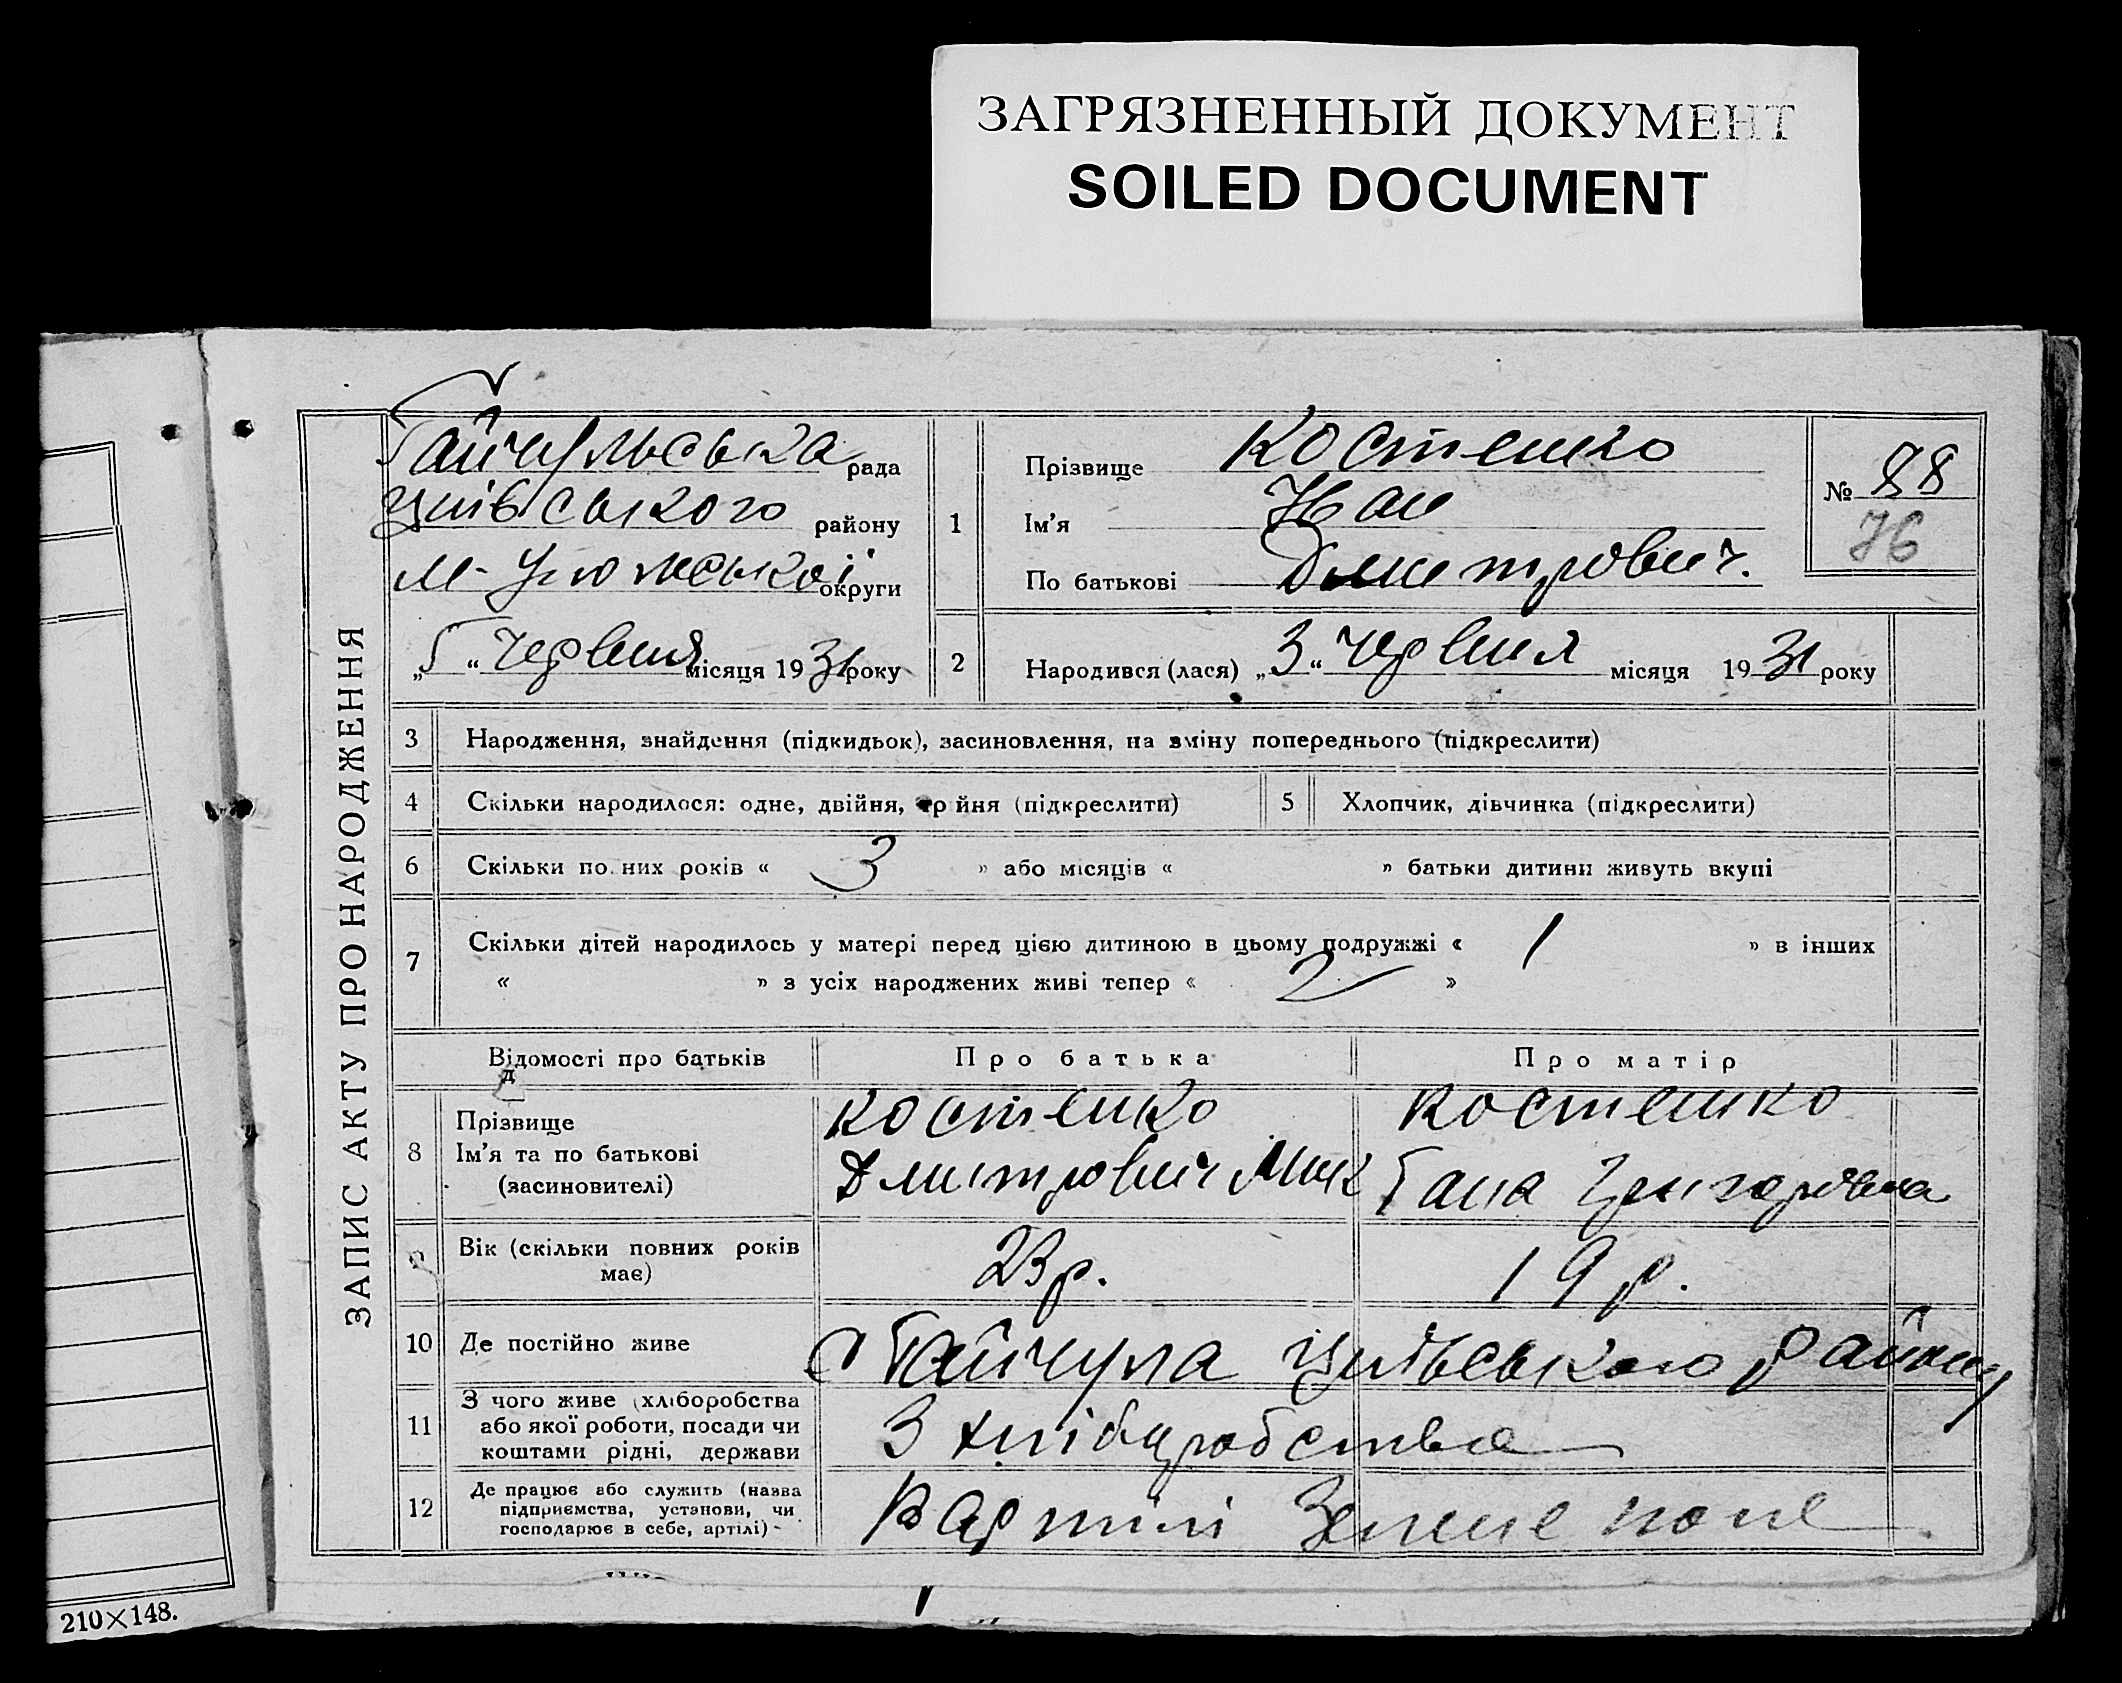 ЗАГРЯЗНЕННЫЙ ДОКУМЕНТ
SOILED DOCUMENT
ЗАПИС АКТУ ПРО НАРОДЖЕННЯ
Гайчульська рада
району
округи
„5“ Червня місяця 1931 року
1
Прізвище Костенко
Ім'я Іван
По батькові Дмитрович.
№ 88
76
2
Народився (лася) „3“ Червня місяця 1931 року
3 Народження, знайдення (підкидьок), засиновлення, на зміну попереднього (підкреслити)
4 Скільки народилося: одне, двійня, трійня (підкреслити)
5 Хлопчик, дівчинка (підкреслити)
6 Скільки повних років « 3 » або місяців « » батьки дитини живуть вкупі
7 Скільки дітей народилось у матері перед цією дитиною в цьому подружжі « 1 » в інших
« » з усіх народжених живі тепер « 2 »
Відомості про батьків
Про батька
Про матір
д
8 Прізвище
Ім'я та по батькові
(засиновителі)
Костенко
Дмитрович Мик
Костенко
Гана Григорівна
9 Вік (скільки повних років
має)
23 р.
19 р.
10 Де постійно живе
с Гайчула району
11 З чого живе (хліборобства
або якої роботи, посади чи
коштами рідні, держави
З хліборобства
12 Де працює або служить (назва
підприємства, установи, чи
господарює в себе, артілі)
В артілі Зелене поле
210×148.